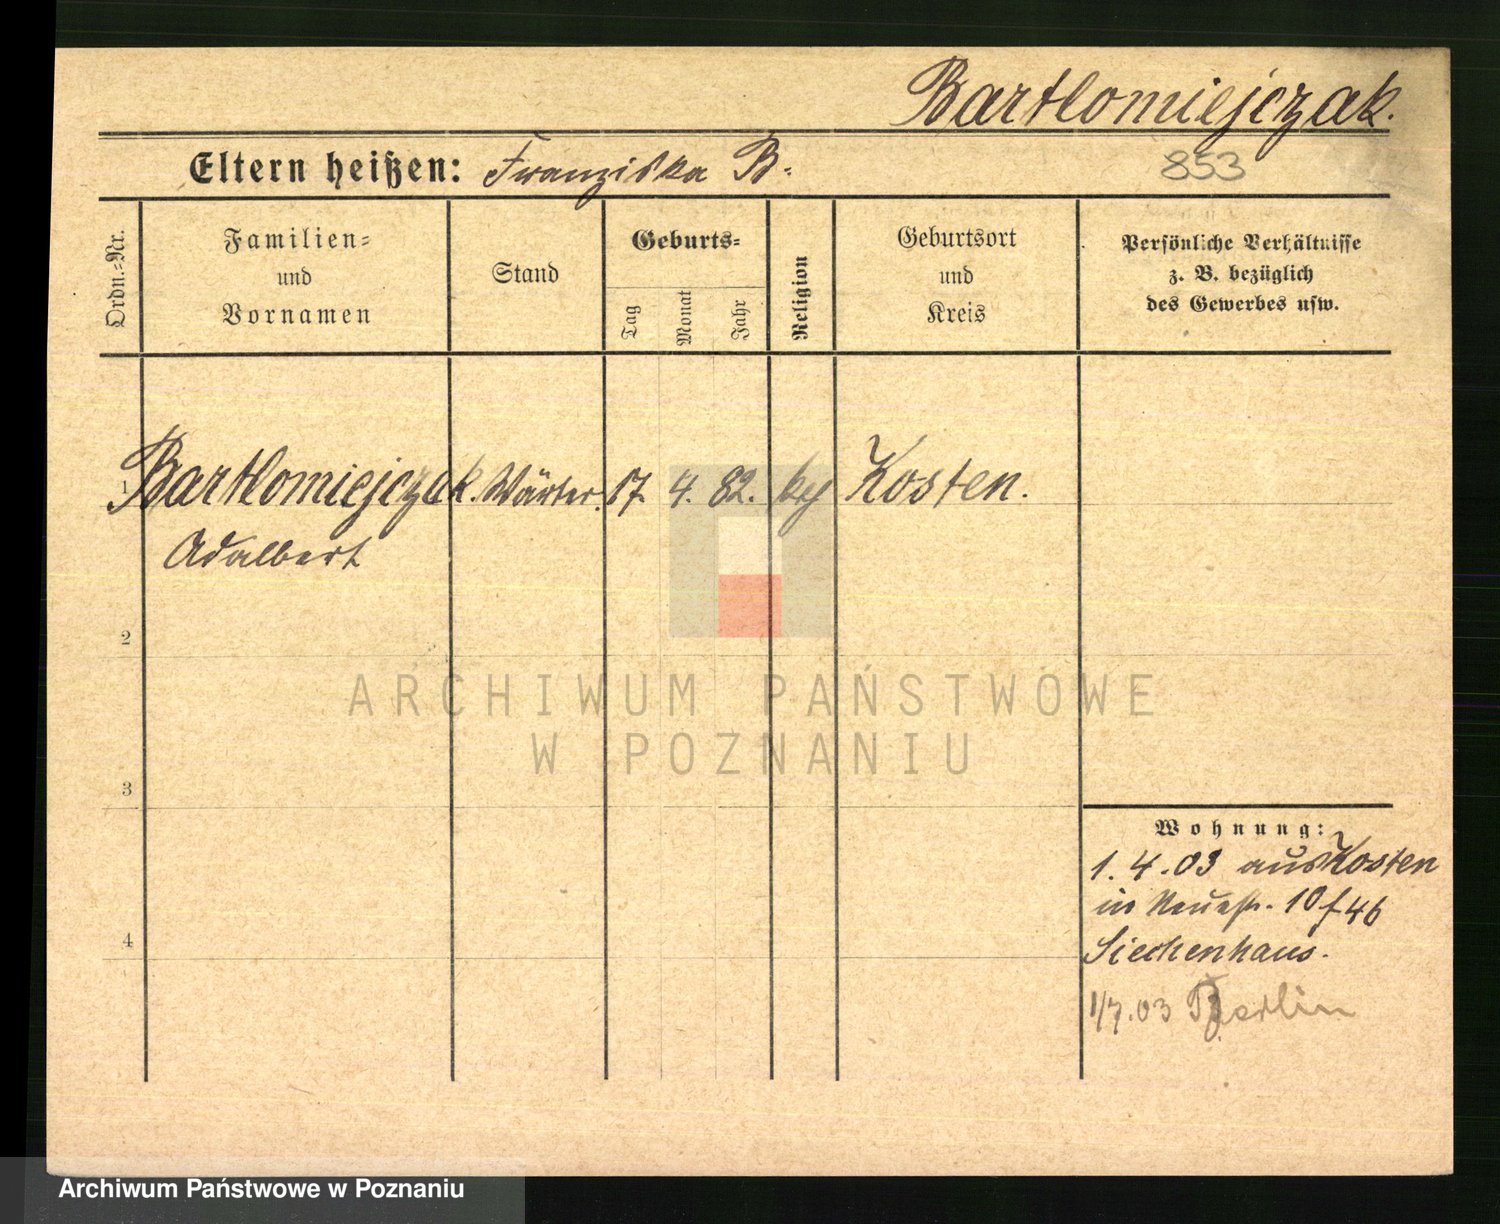 Bartlomiejczak.
Eltern heißen: Franziska B.
853
Ordn.-Nr.
Familien-
und
Vornamen
Stand
Geburts-
Tag
Monat
Jahr
Religion
Geburtsort
und
Kreis
Persönliche Verhältnisse
z. B. bezüglich
des Gewerbes usw.
1 Bartlomiejczak. Wärter. 17. 4. 82. Kosten.
Adalbert
2
3
4
ARCHIWUM PAŃSTWOWE
W POZNANIU
Wohnung:
1. 4. 03 aus Kosten
in Neuestr. 10 f 46
Siechenhaus.
1/7.03 Berlin
Archiwum Państwowe w Poznaniu